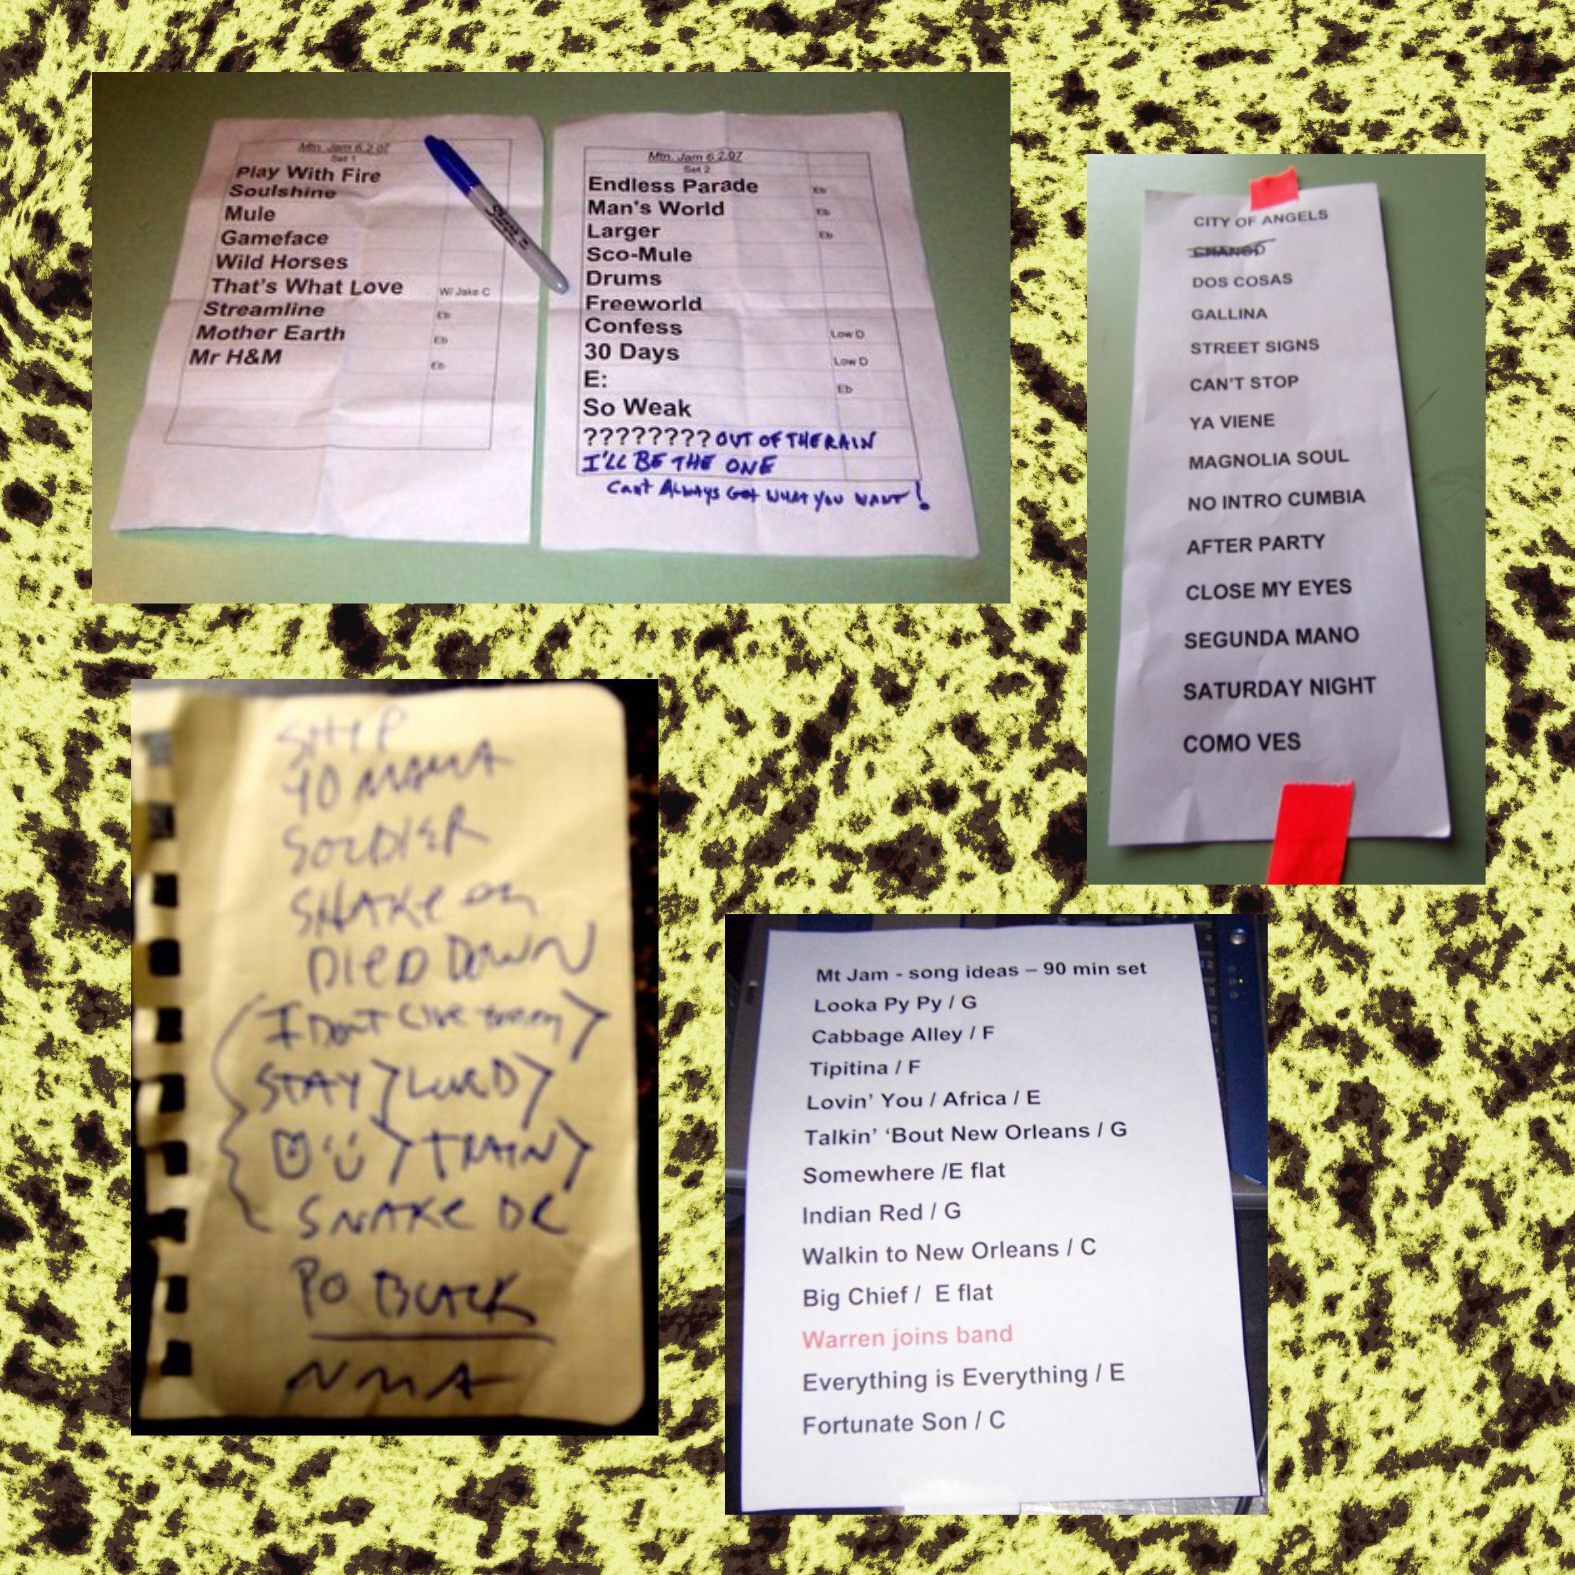 Mtn. Jam 6.2.07
Set 1
Play With Fire
Soulshine
Mule
Gameface
Wild Horses
That's What Love W/ Jake C
Streamline Eb
Mother Earth Eb
Mr H&M Eb
Sharpie
Mtn. Jam 6.2.07
Set 2
Endless Parade Eb
Man's World Eb
Larger Eb
Sco-Mule
Drums
Freeworld
Confess Low D
30 Days Low D
E: Eb
So Weak
???????? OUT OF THE RAIN
I'LL BE THE ONE
CAN'T ALWAYS GET WHAT YOU WANT!
CITY OF ANGELS
CHANGO
DOS COSAS
GALLINA
STREET SIGNS
CAN'T STOP
YA VIENE
MAGNOLIA SOUL
NO INTRO CUMBIA
AFTER PARTY
CLOSE MY EYES
SEGUNDA MANO
SATURDAY NIGHT
COMO VES
SHIP
YO MAMA
SOLDIER
SHAKE ON
DIED DOWN
I DON'T LIVE TODAY >
STAY > LORD >
> TRAIN >
SNAKE DR
PO BLACK
NMA
Mt Jam - song ideas – 90 min set
Looka Py Py / G
Cabbage Alley / F
Tipitina / F
Lovin' You / Africa / E
Talkin' ‘Bout New Orleans / G
Somewhere /E flat
Indian Red / G
Walkin to New Orleans / C
Big Chief / E flat
Warren joins band
Everything is Everything / E
Fortunate Son / C